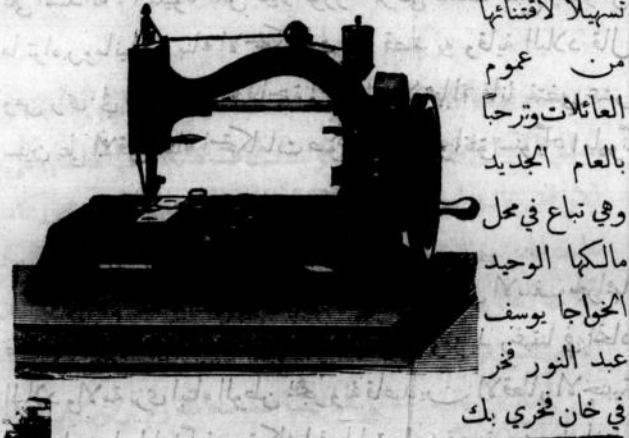 تسهيلاً لاقتنائها
من عموم
العائلات وترحباً
بالعام الجديد
وهي تباع في محل
مالكها الوحيد
الخواجا يوسف
عبد النور فخر
في خان فخري بك